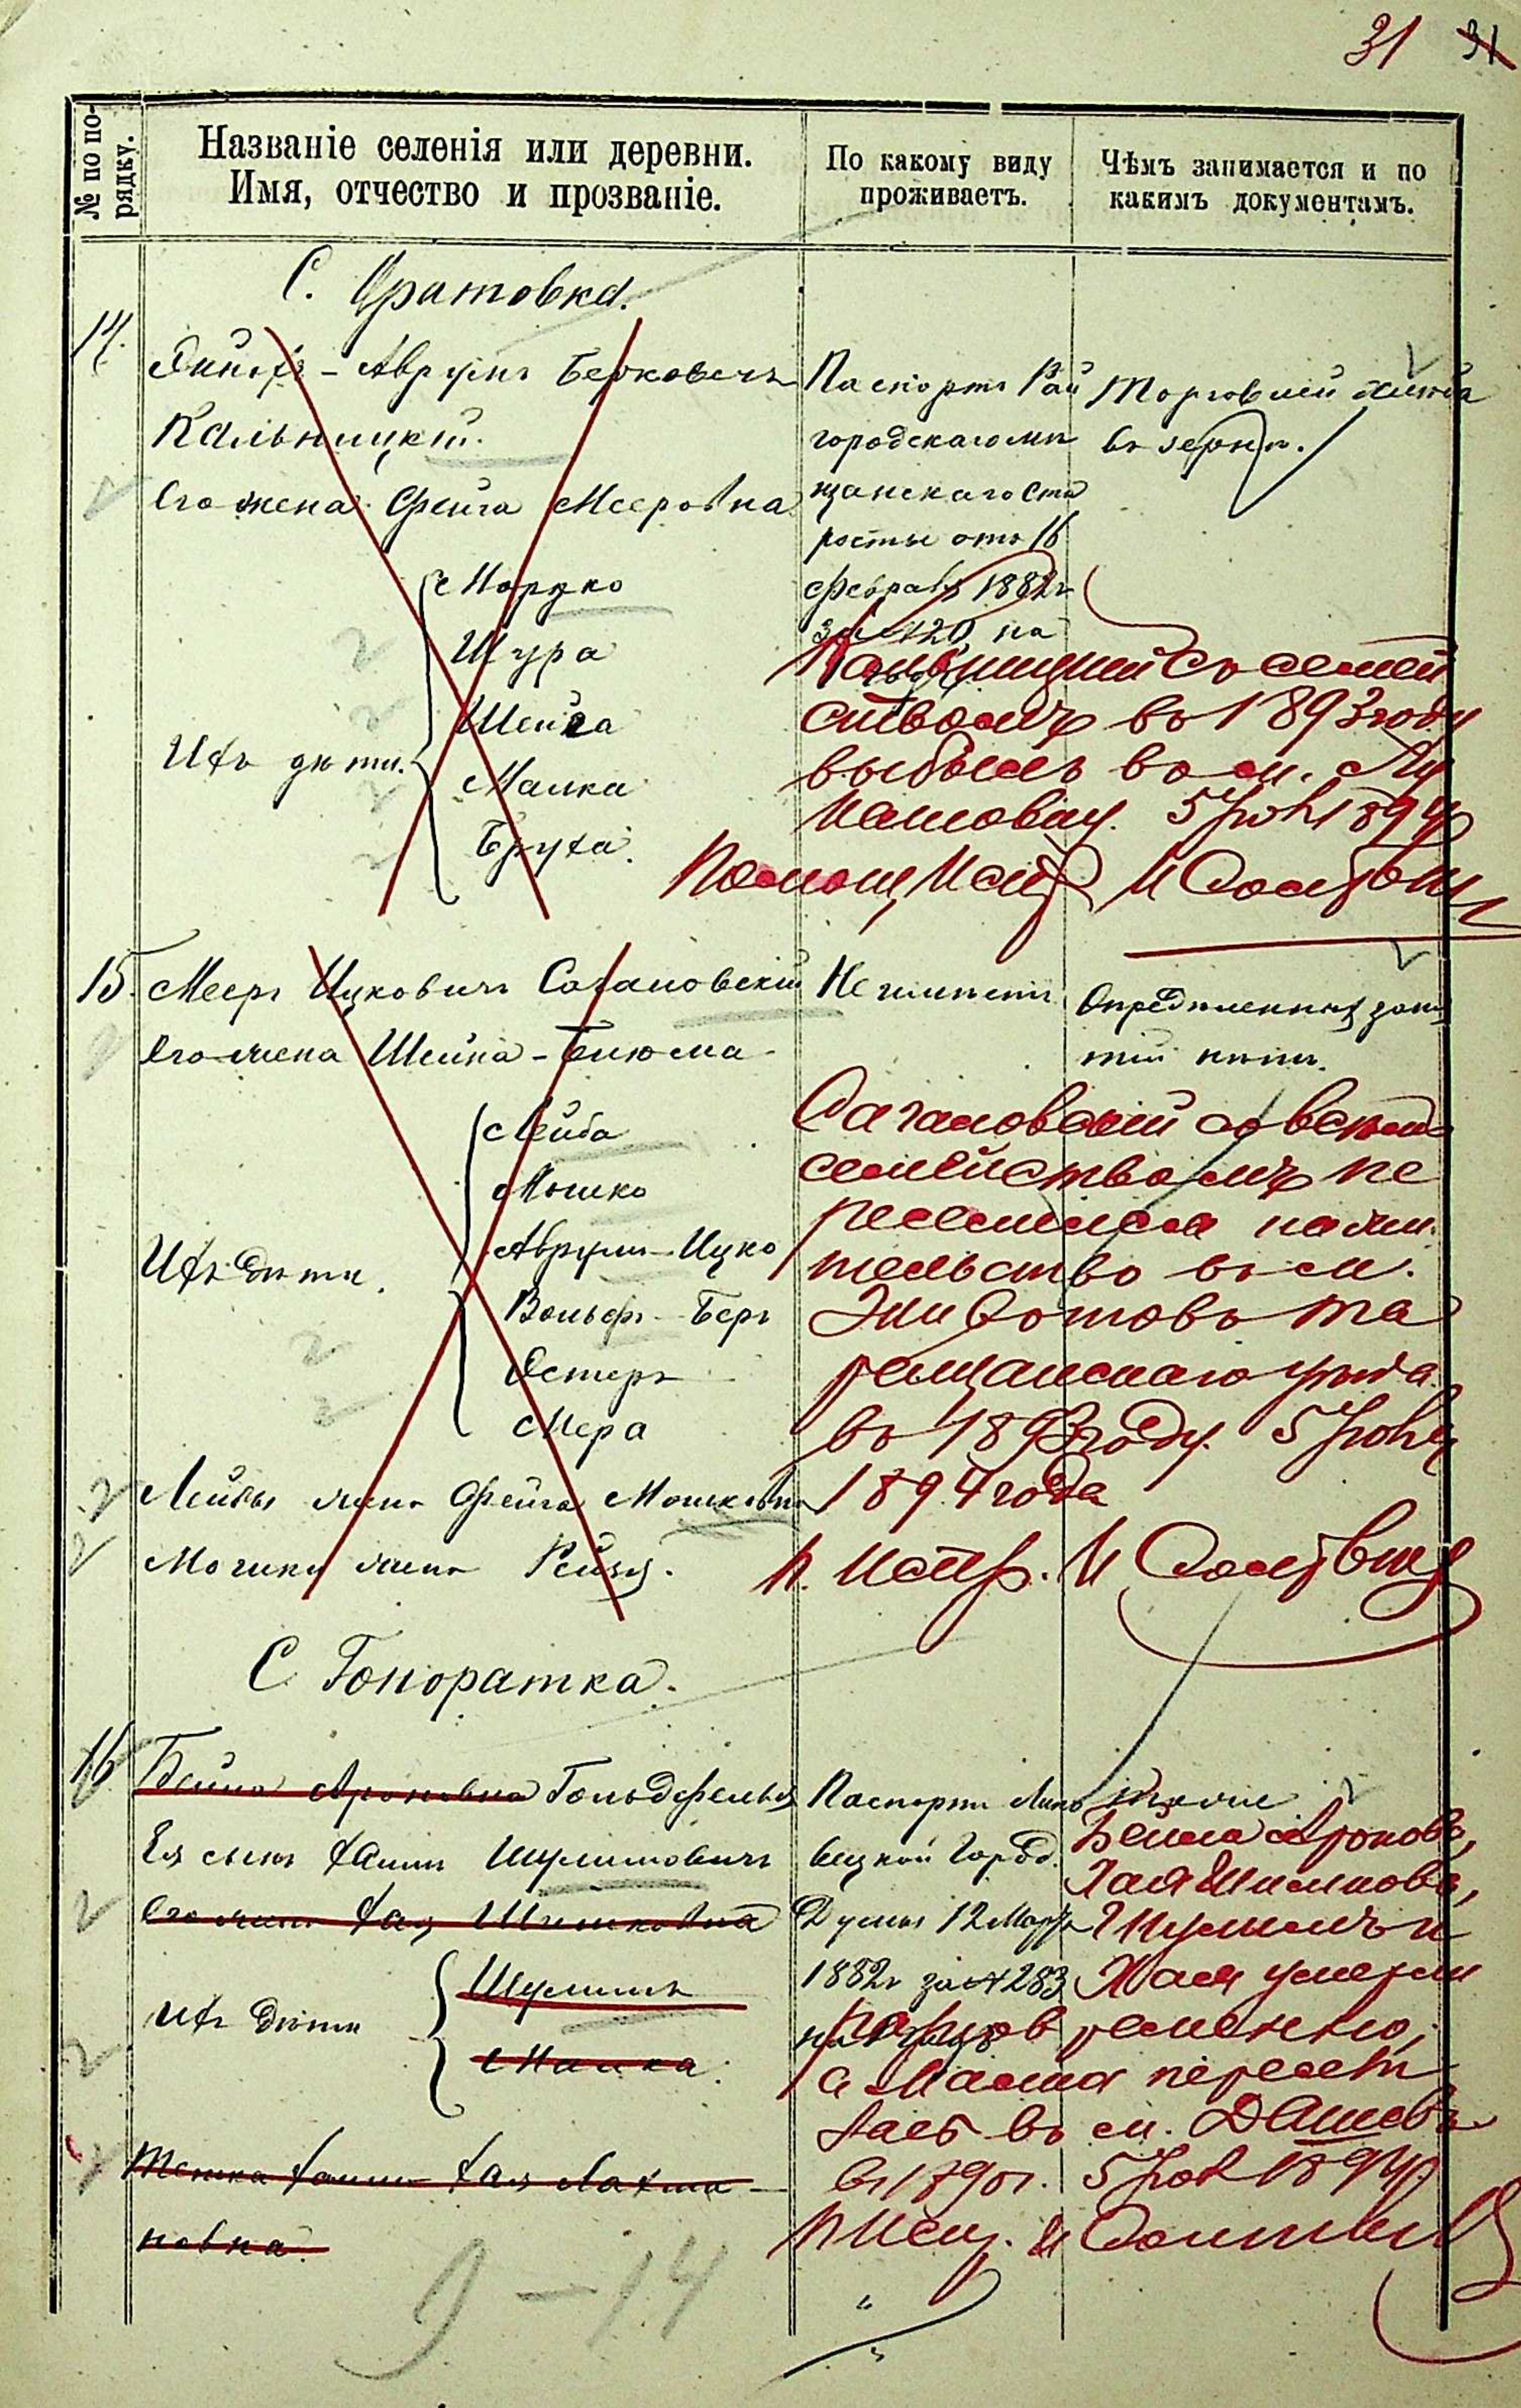 31 31
№ по по-
рядку.
Названіе селенія или деревни.
Имя, отчество и прозваніе.
По какому виду
проживаетъ.
Чѣмъ занимается и по
какимъ документамъ.
С. Оратовка.
14.
Аврумъ Берковичъ
Кальницкій.
Его жена Фейга Мееровна
Шура
Шейва
Ихъ дѣти.
Малка
Бруха.
Паспортъ Рай
городскаго мѣ
щанскаго Ста
росты отъ 16
Февраля 1882 г
за № 120, на
Торговлей хлѣба
въ зернѣ.
Кальницкій съ семей
ствомъ въ 1893 году
выбылъ въ м.
5 Іюня 1894
15. Мееръ Ицковичъ Сагановскій
Его жена Шейна-Блюма
Лейба
Мошко
Аврумъ-Ицко
Ихъ дѣти.
Вольфъ-Беръ
Эстеръ
Мера
Лейбы жена Фейга Мошковна
Мошки жена Рейзя.
Не имѣетъ
Опредѣленныхъ заня
тій нѣтъ.
Сагановскій со всѣмъ
семействомъ пе
реселился на жи
тельство въ м.
Животовъ Та
ращанскаго уѣзда
въ 1893 году. 5 Іюня
1894 года
С. Гоноратка.
16.
Бейла Ароновна Гольдфельдъ
Ея сынъ Хаимъ Шулимовичъ
Его жена Хая Шимковна
Шулимъ
Ихъ дѣти
Малка.
Хаима Хая Лахма-
новна.
Паспортъ Липо
вецкой Город.
Думы 12 Марта
1882 г за № 283
Тоже
Бейла Аронова,
Хая Шимкова,
Шулимъ и
Хая умерли
разновременно,
а Малка
въ м. Дашевъ
въ 1890 г. 5 1894 г.
9 - 14